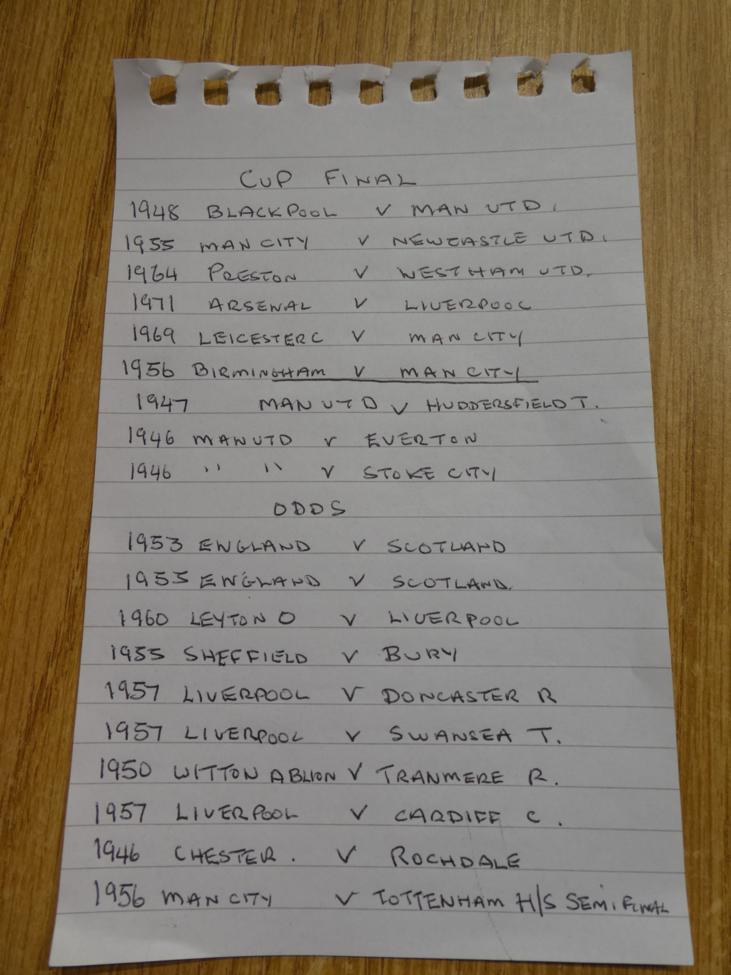 CUP FINAL
1948 BLACKPOOL V MAN UTD.
1955 MAN CITY V NEWCASTLE UTD.
1964 PRESTON V WESTHAM UTD.
1971 ARSENAL V LIVERPOOL
1969 LEICESTER C V MAN CITY
1956 BIRMINGHAM V MAN CITY
1947 MAN UTD V HUDDERSFIELD T.
1946 MAN UTD V EVERTON
1946 '' '' V STOKE CITY
ODDS
1953 ENGLAND V SCOTLAND
1955 ENGLAND V SCOTLAND.
1960 LEYTON O V LIVERPOOL
1955 SHEFFIELD V BURY
1957 LIVERPOOL V DONCASTER R
1957 LIVERPOOL V SWANSEA T.
1950 WITTON ABLION V TRANMERE R.
1957 LIVERPOOL V CARDIFF C.
1946 CHESTER. V ROCHDALE
1956 MAN CITY V TOTTENHAM H/S SEMI FINAL